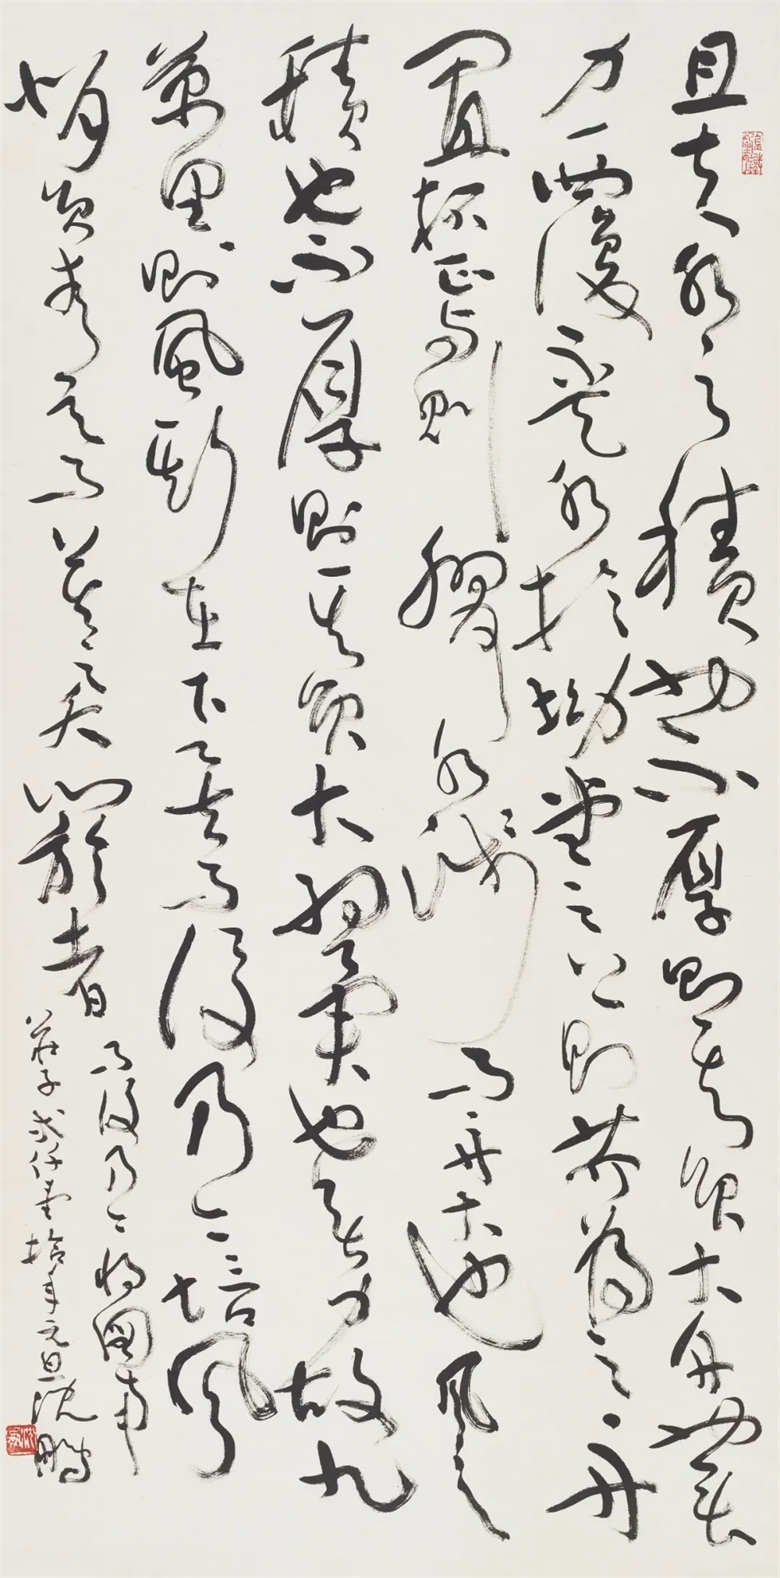 且夫水之積也不厚則其負大舟也無
力覆盃水於坳堂之上則芥為之舟
置杯焉則膠水淺而舟大也風之
積也不厚則其負大翼也無力故九
萬里則風斯在下矣而後乃今培風
背負青天而莫之夭閼者
而後乃今將圖南
莊子 弍仟壹拾年元旦沈鵬